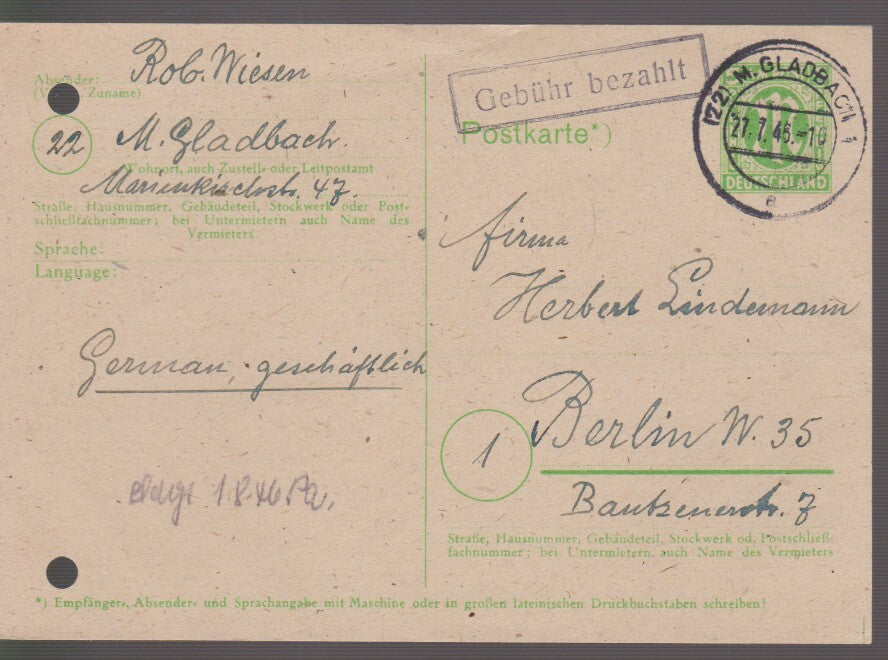 Absender: Rob. Wiesen
(Vor- u. Zuname)
22 M. Gladbach.
Wohnort, auch Zustell- oder Leitpostamt
Marienkirchstr. 47.
Straße, Hausnummer, Gebäudeteil, Stockwerk oder Post-
schließfachnummer; bei Untermietern auch Name des
Vermieters
Sprache:
Language:
German, geschäftlich
1.8.46
Gebühr bezahlt
Postkarte*)
(22) M. GLADBACH 1
27.7.46.-10
a
DEUTSCHLAND
Firma
Herbert Lindemann
1 Berlin W. 35
Bautzenerstr. 7
Straße, Hausnummer, Gebäudeteil, Stockwerk od. Postschließ-
fachnummer; bei Untermietern auch Name des Vermieters
*) Empfänger-, Absender- und Sprachangabe mit Maschine oder in großen lateinischen Druckbuchstaben schreiben!